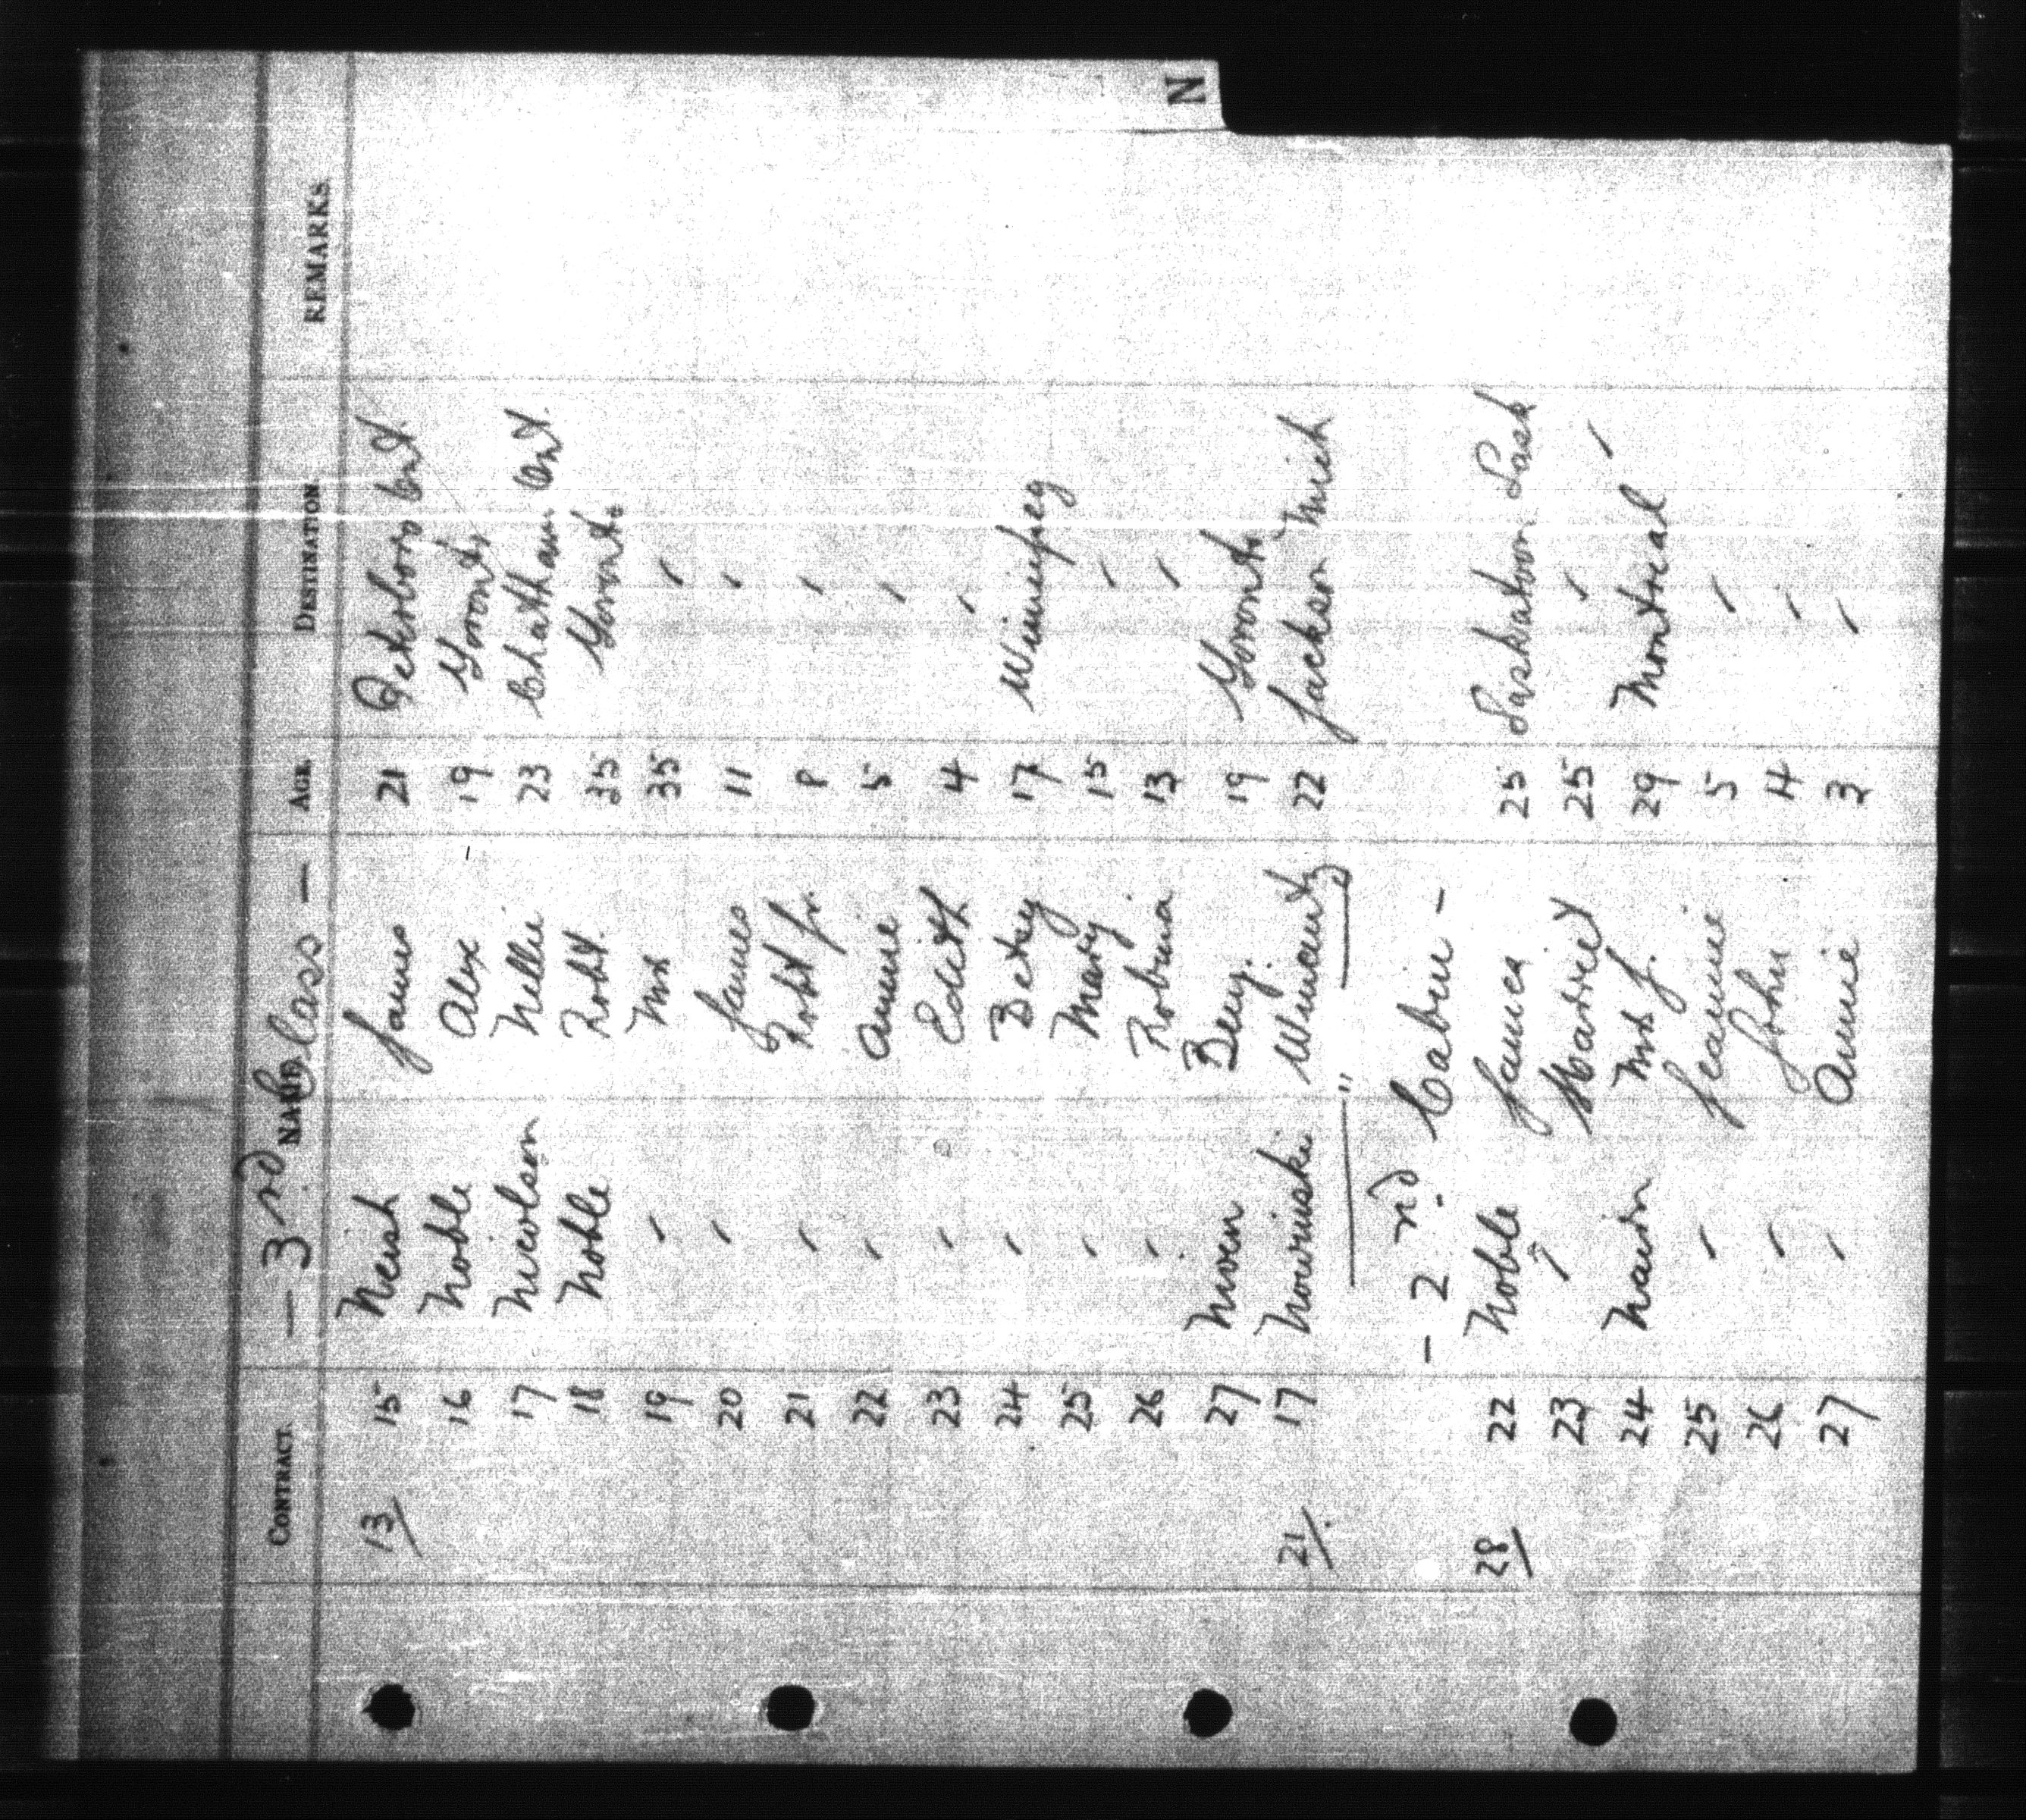 N
— 3rd Class —
CONTRACT. NAME AGE. DESTINATION. REMARKS.
13/ 15 Neish James 21 Peterboro Ont.
16 Noble Alex 19 Toronto
17 Nicolson Nellie 23 Chatham Ont.
18 Noble Robt. 35 Toronto
19 " Mrs 35 "
20 " James 11 "
21 " Robt Jr. 8 "
22 " Annie 5 "
23 " Edith 4 "
24 " Betsy 17 Winnipeg
25 " Mary 15 "
26 " Robina 13 "
27 Niven Benj. 19 Toronto
21/. 17 Nowinski Wincenty 22 Jackson Mich
— " —
— 2nd Cabin —
28/ 22 Noble James 25 Saskatoon Sask
23 " Harriet 25 " "
24 Nairn Mrs J. 29 Montreal
25 " Jeannie 5 "
26 " John 4 "
27 " Annie 3 "